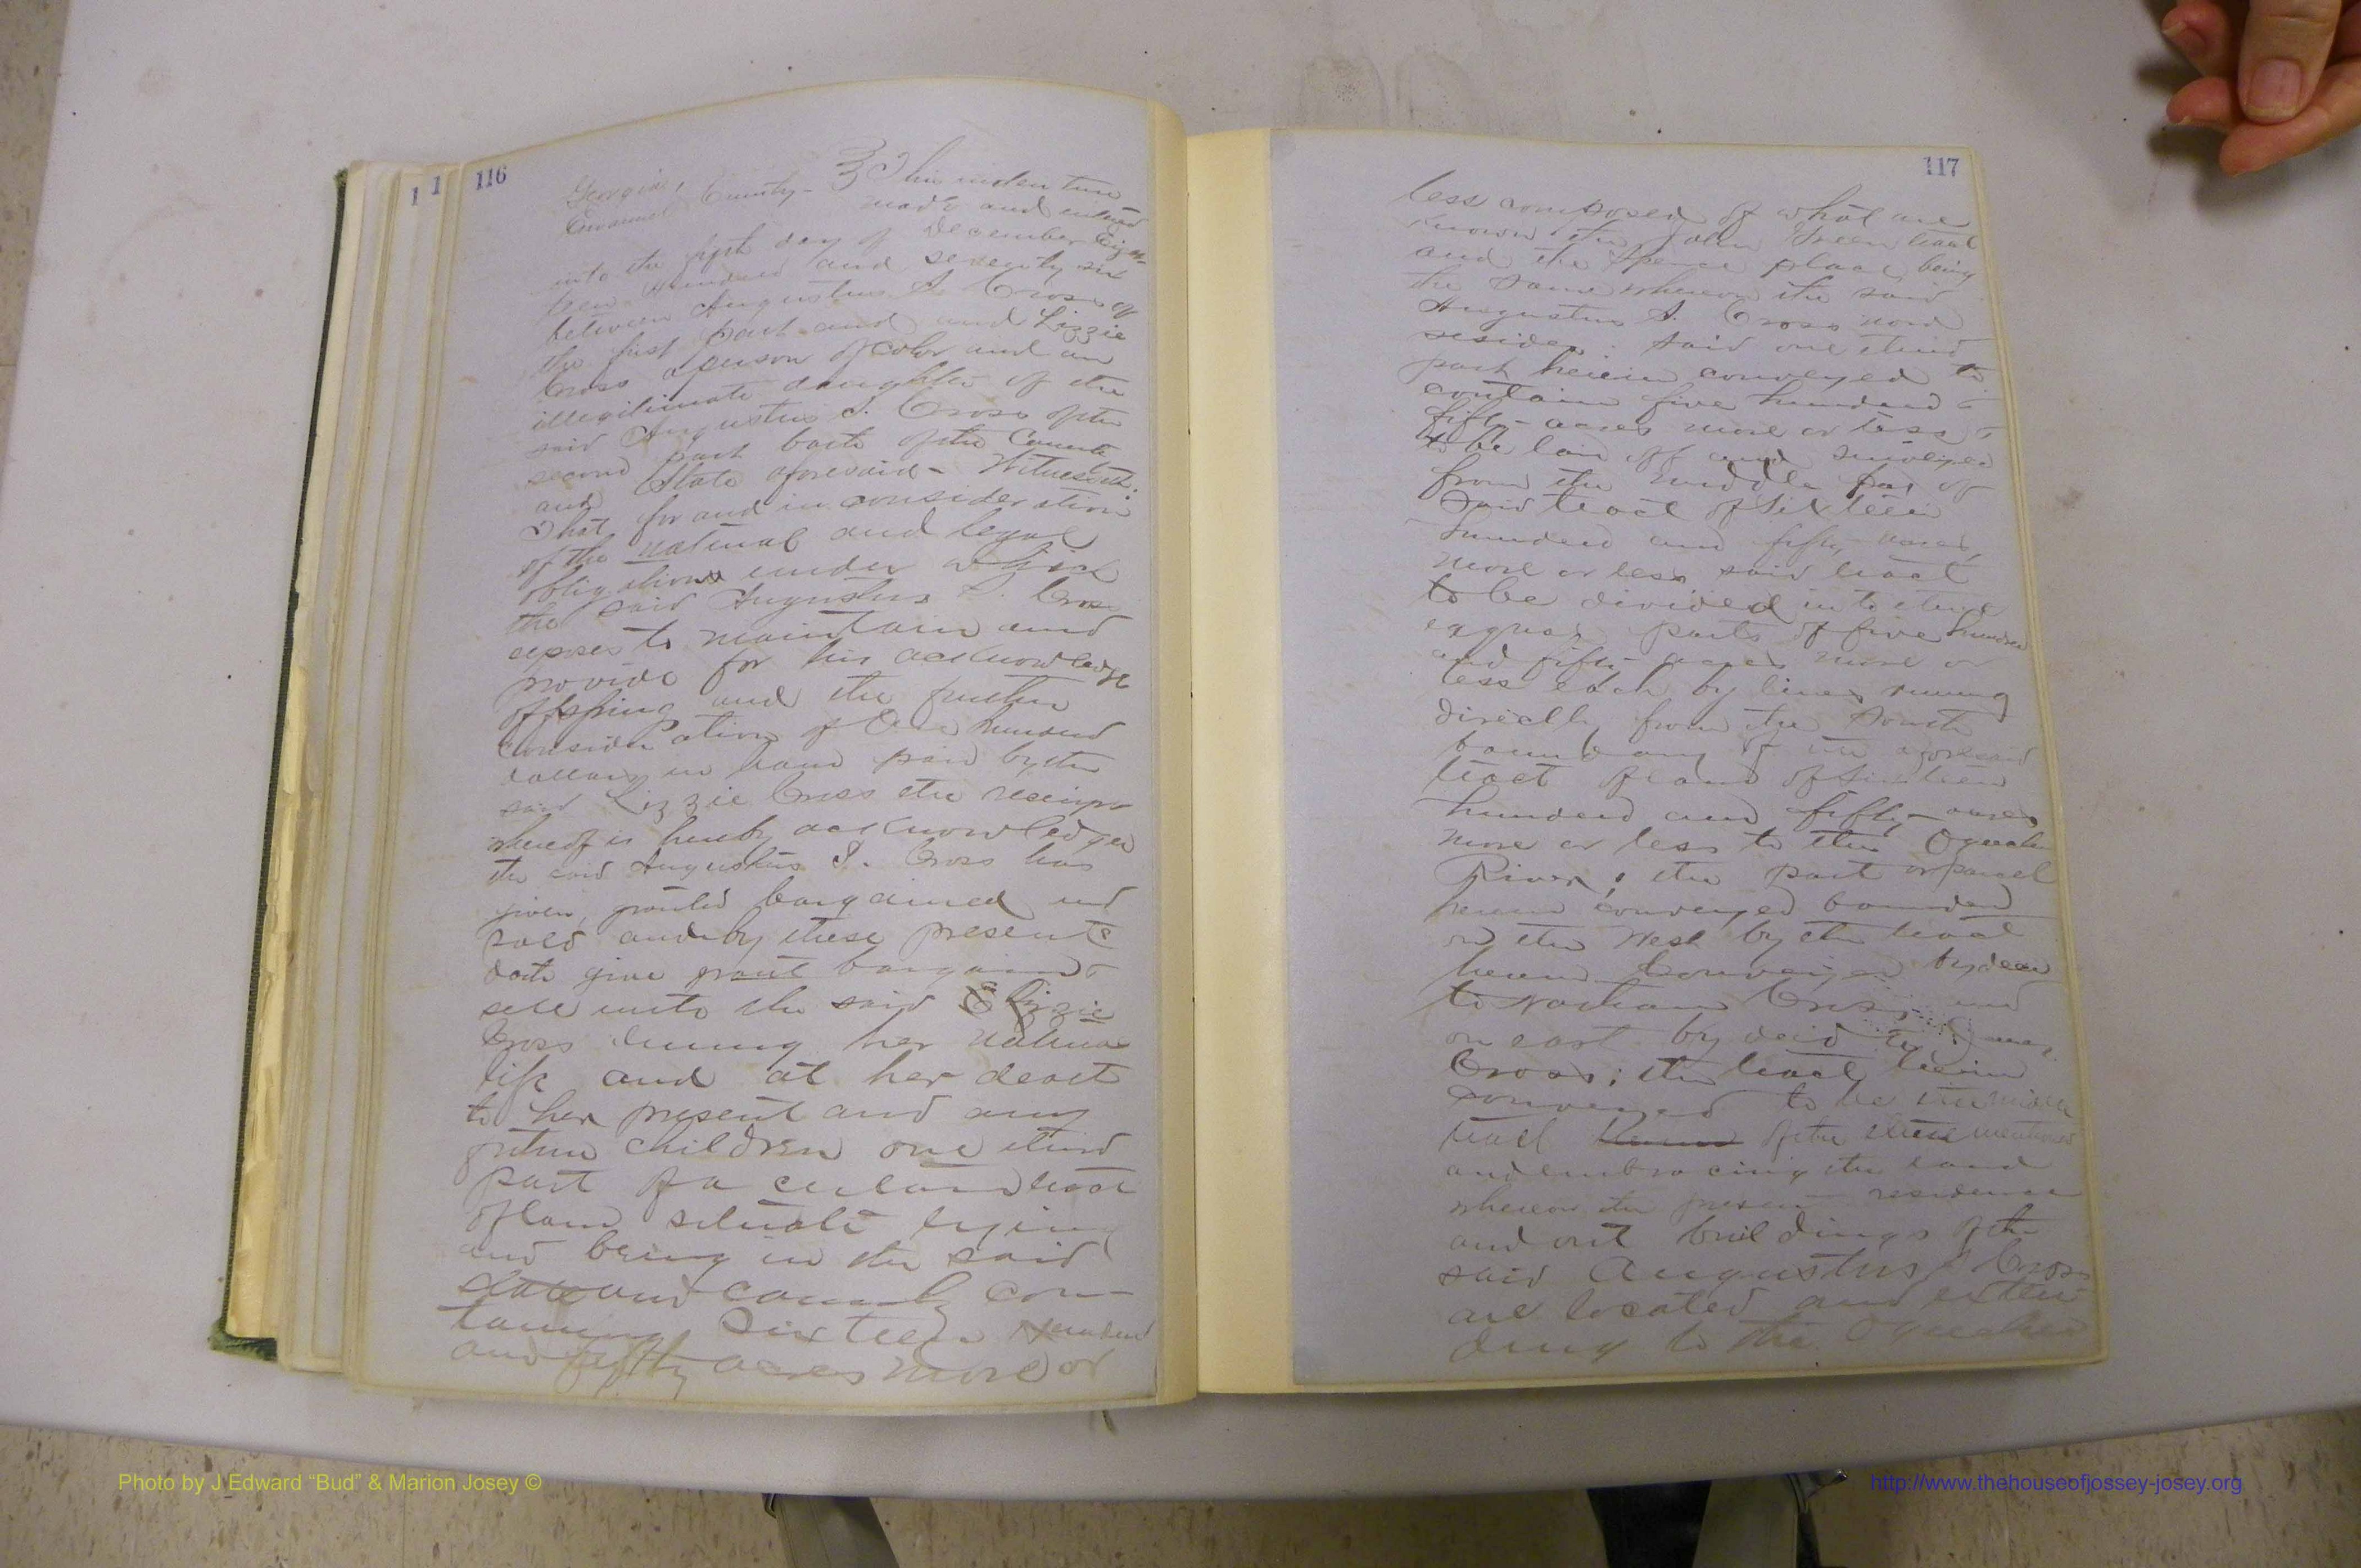 116
Georgia,
Emanuel County - } This indenture
made and entered
into the first day of December Eigh-
teen hundred and seventy six
between Augustus S. Cross of
the first part and and Lizzie
Cross a person of color and an
illegitimate daughter of the
said Augustus S. Cross of the
second part both of the County
and State aforesaid - Witnesseth:
That for and in consideration
of the natural and legal
obligations under which
the said Augustus S. Cross
to maintain and
provide for his acknowledge
offspring and the further
consideration of One hundred
dollars in hand paid by the
said Lizzie Cross the receipt
whereof is hereby acknowledged
the said Augustus S. Cross has
given, granted bargained and
sold and by these presents
doth give grant bargain &
sell unto the said Lizzie
Cross during her natural
life and at her death
to her present and any
future children one third
part of a certain tract
of land situate lying
and being in the said
state and county con-
taining Sixteen hundred
and fifty acres more or
117
less composed of what are
known the John Green tract
and the Spence place being
the same whereon the said
Augustus S. Cross now
resides. Said one third
part herein conveyed to
contain five hundred &
fifty - acres more or less &
to be laid off and surveyed
from the middle of
said tract of Sixteen
hundred and fifty acres,
more or less said tract
to be divided into three
equal parts of five hundred
and fifty acres more or
less each by lines running
directly from the South
boundary of the aforesaid
tract of land of Sixteen
hundred and fifty - acres
more or less to the Ogeechee
River; the part or parcel
herein conveyed bounded
on the West by the tract
herein conveyed by deed
to Nathan Cross, and
on east by deed to
Cross; the tract herein
conveyed to be the middle
tract of the three mentioned
and embracing the land
whereon the present residence
and out buildings of the
said Augustus S Cross
are located and exten
ding to the Ogeechee
Photo by J Edward “Bud” & Marion Josey ©
http://www.thehouseofjossey-josey.org